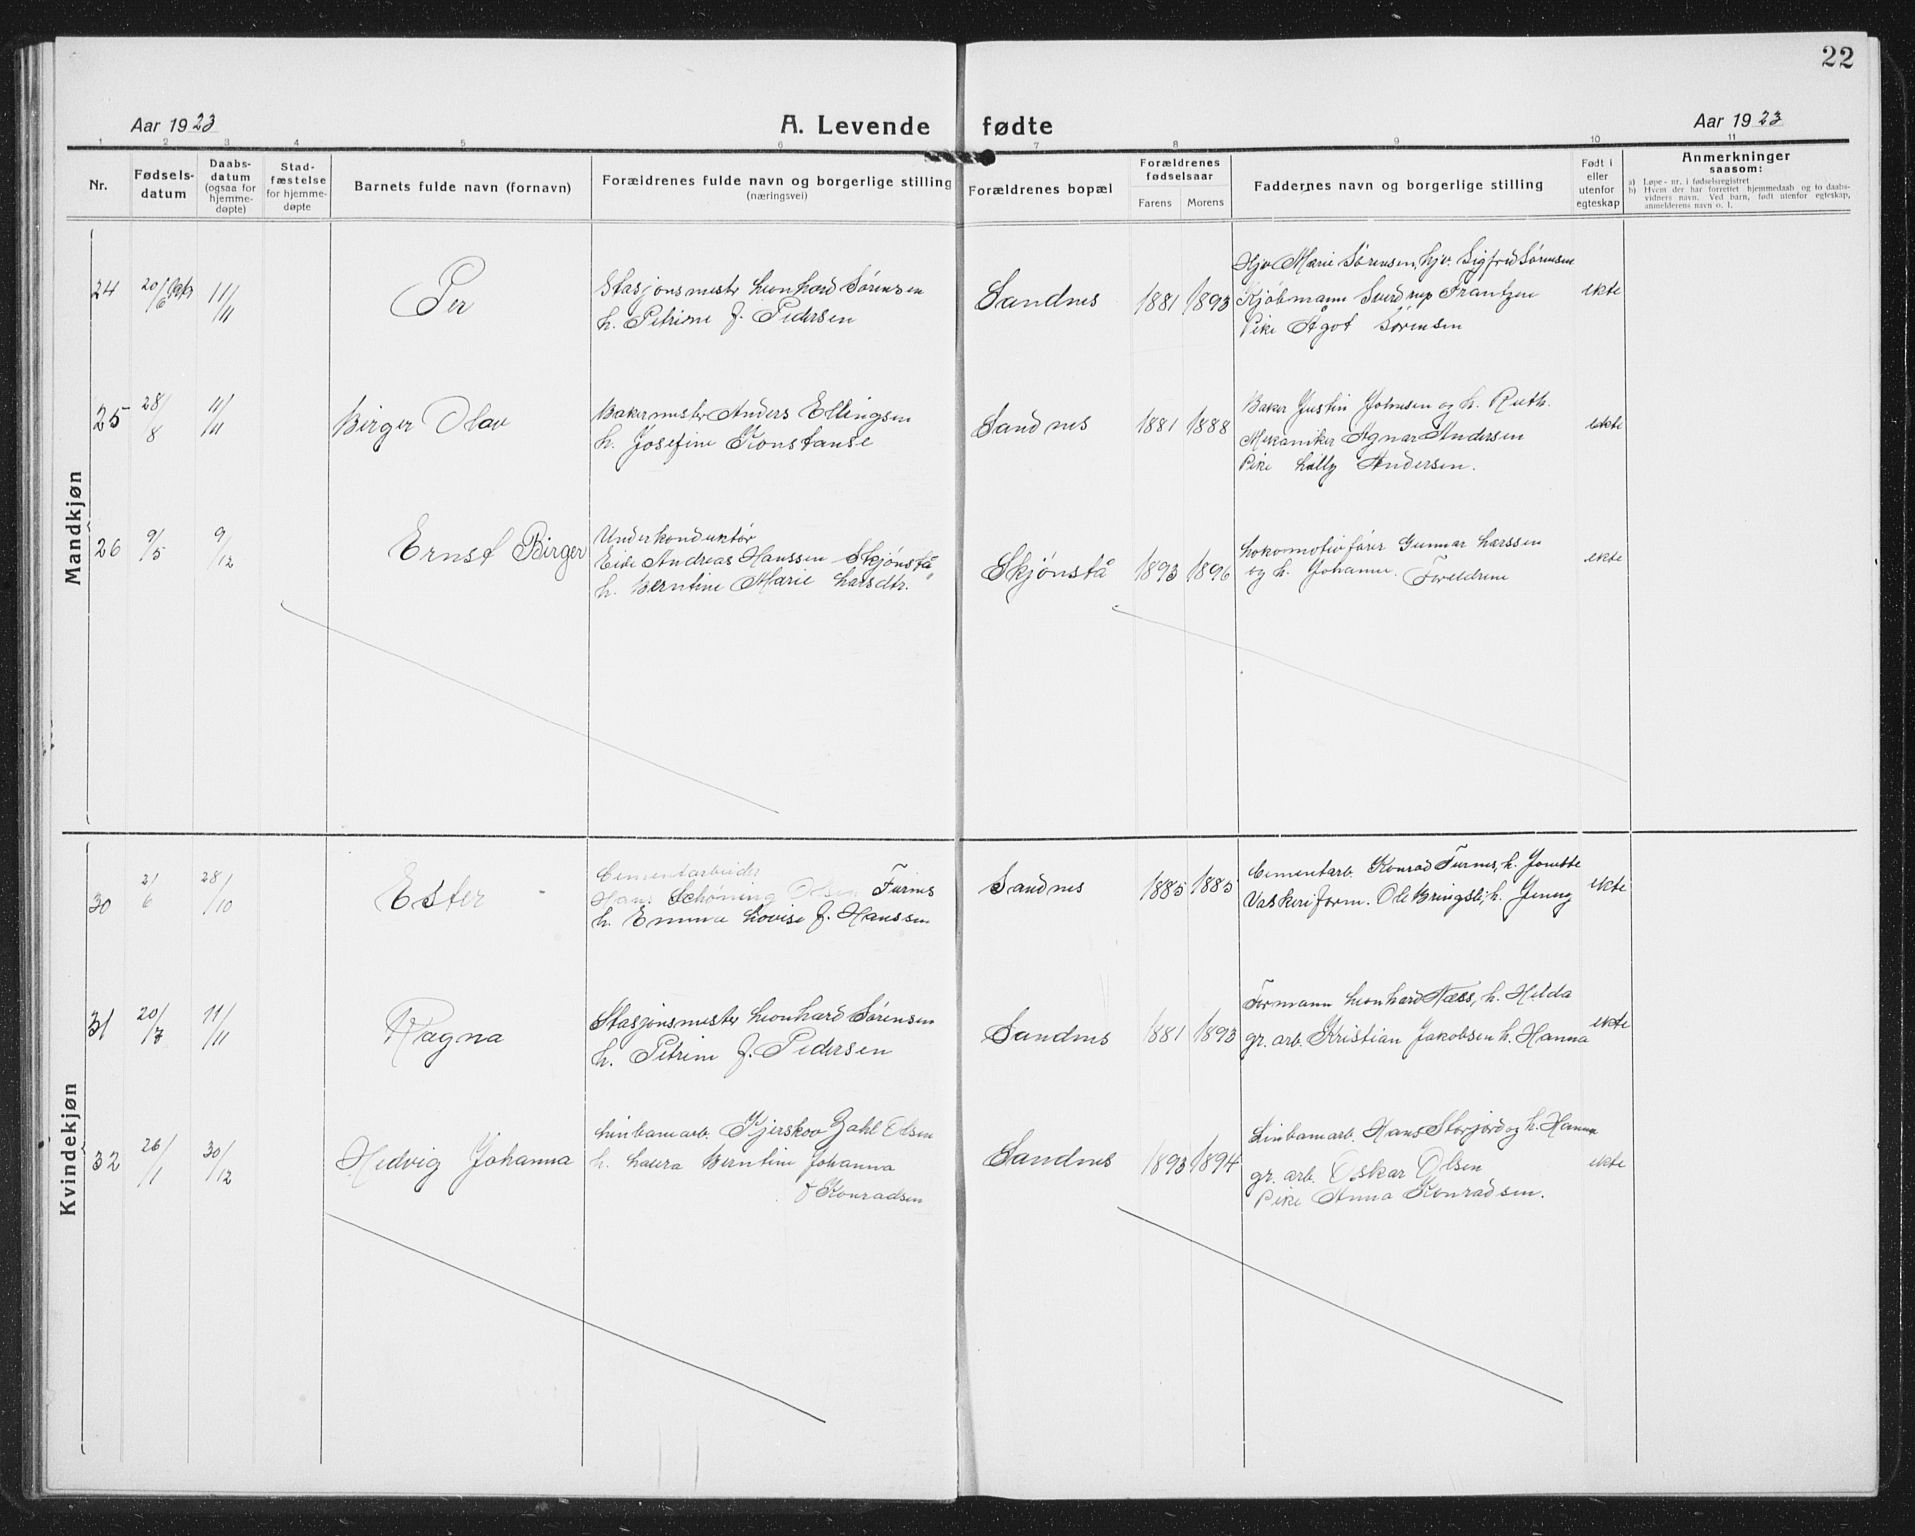 22
Aar 1923
A. Levende fødte
Aar 1923
1 2 3 4 5 6 7 8 9 10 11
Nr.
Fødsels-
datum
Daabs-
datum
(ogsaa for
hjemme-
døpte)
Stad-
fæstelse
for hjemme-
døpte
Barnets fulde navn (fornavn)
Forældrenes fulde navn og borgerlige stilling
(næringsvei)
Forældrenes bopæl
Forældrenes
fødselsaar
Farens
Morens
Faddernes navn og borgerlige stilling
Født i
eller
utenfor
egteskap
Anmerkninger
saasom:
a) Løpe-nr. i fødselsregistret
b) Hvem der har forrettet hjemmedaab og to daabs-
vidners navn. Ved barn, født utenfor egteskap,
anmelderens navn o. l.
Mandkjøn
24 20/6 11/11 Per
Stasjonsmester Leonhard Sørensen
h. Petrine f. Pedersen
Sandnes 1881 1893
Hjv Marie Sørensen, hjv. Sigfrid Sørensen
Kjøbmann Sverdrup Frantzen
Pike Ågot Sørensen
ekte
25 28/8 11/11 Birger Olav
Bakermester Anders Ellingsen
h. Josefine Konstanse
Sandnes 1881 1888
Baker Justin Johnsen og h. Ruth.
Mekaniker Agnar Andersen
Pike Lilly Andersen.
ekte
26 9/5 9/12 Ernst Birger
Underkonduktør
Eide Andreas Hanssen Skjønstå
h. Berntine Marie Larsdtr.
Skjønstå 1893 1896
Lokomotivfører Gunnar Larssen
og h. Johanne. Foreldrene
ekte
Kvindekjøn
30 21/6 28/10 Ester
Cementarbeider
Hans Schøning Olsen Furnes
h. Emma Lovise f. Hanssen
Sandnes 1885 1885
Cementarb. Konrad Furnes, h. Jonette
Vaskeriform. Ole Bringsli, h. Jenny
ekte
31 20/7 11/11 Ragna
Stasjonsmester Leonhard Sørensen
h. Petrine f. Pedersen
Sandnes 1881 1893
Formann Leonhard Næss, h. Hilda
gr. arb. Kristian Jakobsen h. Hanna
ekte
32 26/1 30/12 Hedvig Johanna
Linbanearb. Kjerskov Zahl Olsen
h. Laura Berntine Johanna
f Konradsen
Sandnes 1893 1894
Linbanearb. Hans Storjord og h. Hanna
gr. arb. Oskar Olsen
Pike Anna Konradsen.
ekte